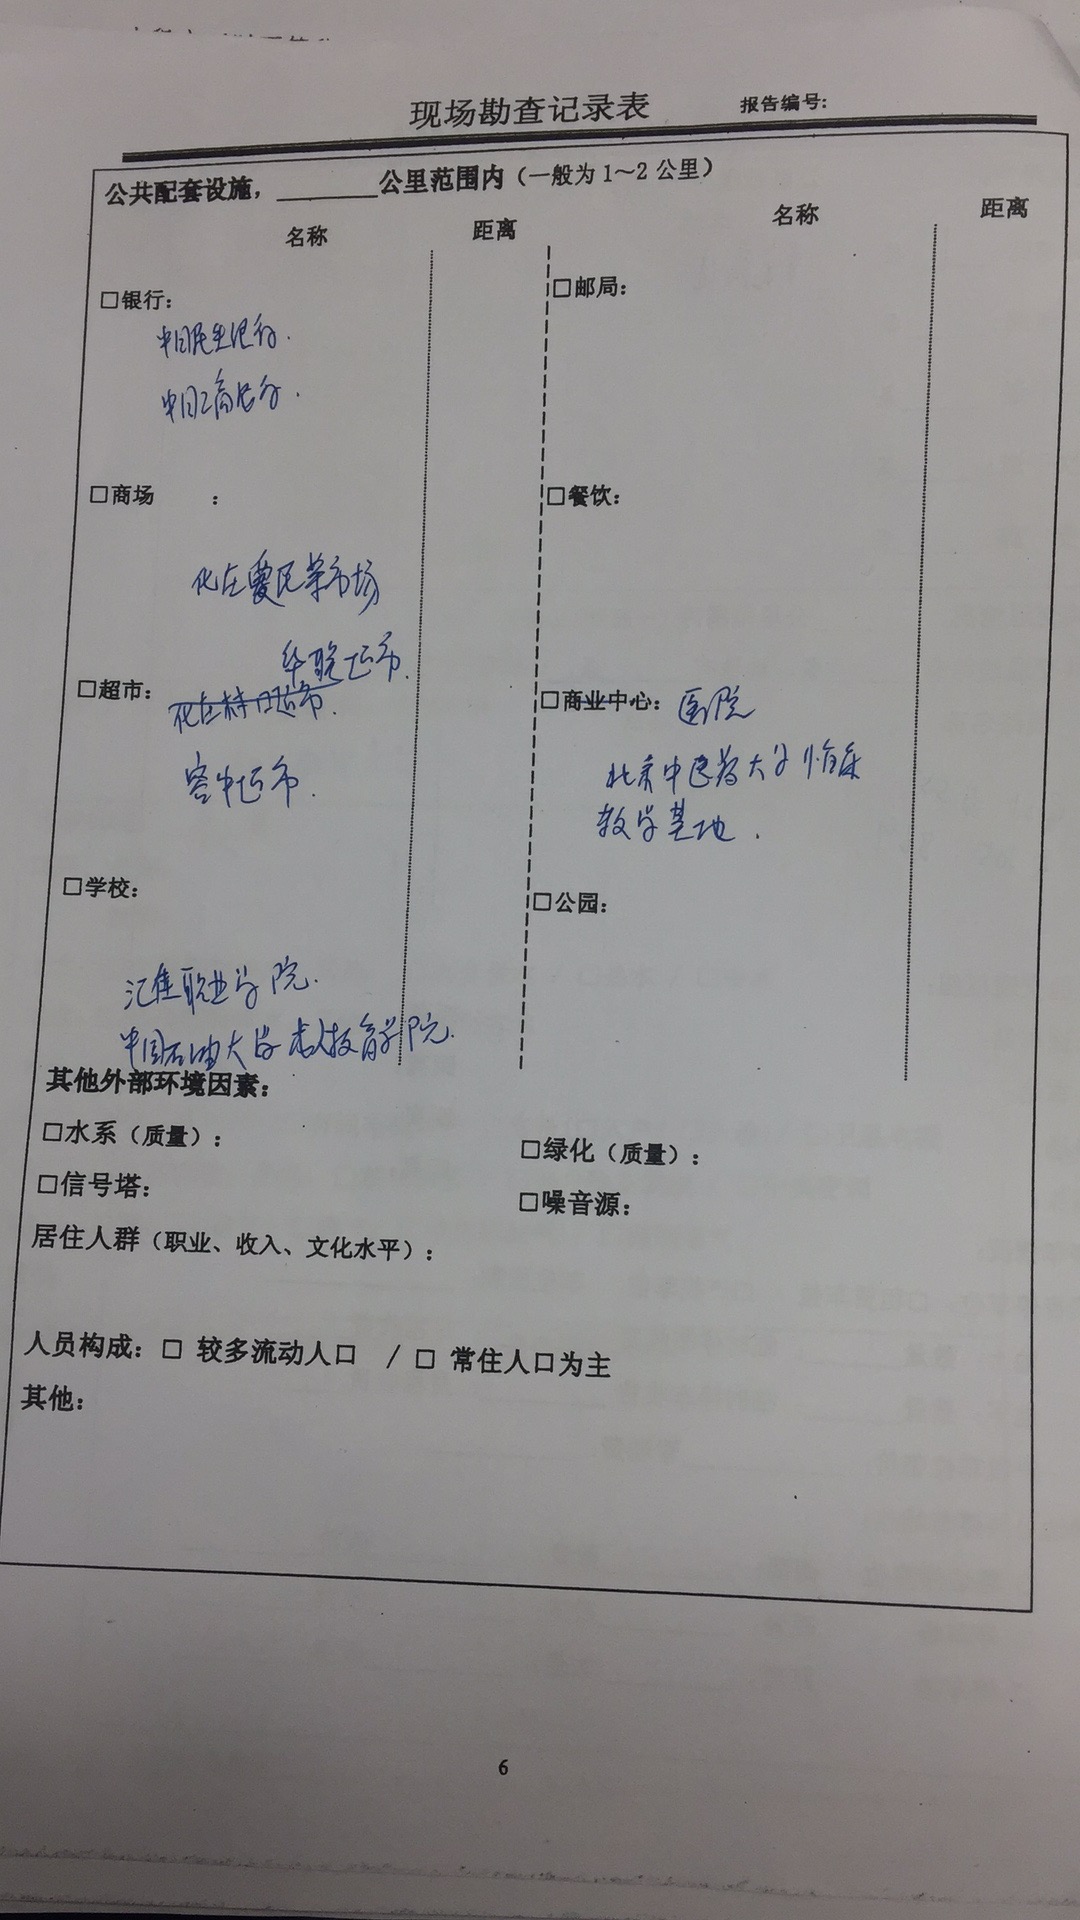 现场勘查记录表 报告编号:
公共配套设施，________公里范围内（一般为 1～2 公里）
名称 距离 名称 距离
□银行: □邮局:
中国民生银行.
中国工商银行.
□商场 : □餐饮:
化庄爱民菜市场
华联超市.
□超市: 化庄村口超市. □商业中心: 医院
客中超市. 北京中医药大学临床
教学基地.
□学校: □公园:
汇佳职业学院.
中国石油大学 教育学院.
其他外部环境因素:
□水系（质量）: □绿化（质量）:
□信号塔: □噪音源:
居住人群（职业、收入、文化水平）:
人员构成: □ 较多流动人口 / □ 常住人口为主
其他:
6